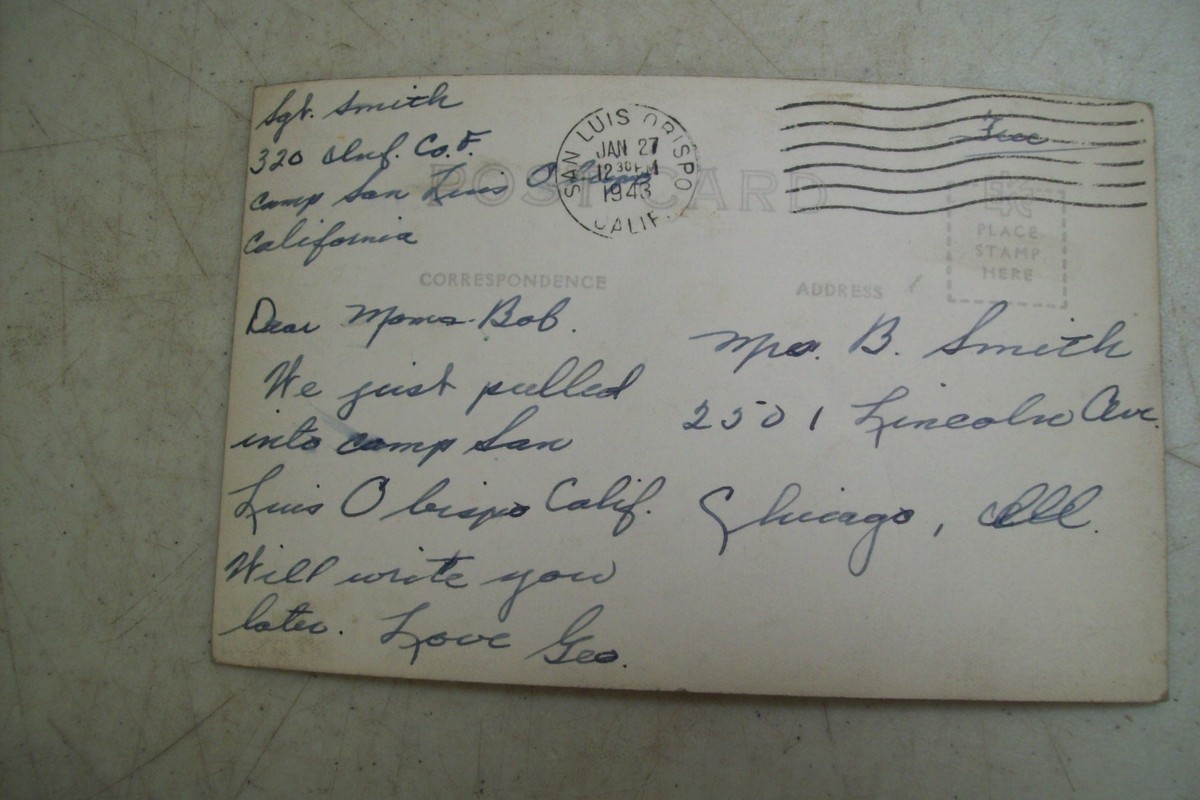 Sgt. Smith
320 Inf. Co. F.
Camp San Luis Obispo
California
SAN LUIS OBISPO
JAN 27
12 30 PM
1943
CALIF.
Free
POST CARD
PLACE
STAMP
HERE
CORRESPONDENCE
ADDRESS
Dear Mom & Bob.
We just pulled
into camp San
Luis Obispo Calif.
Will write you
later. Love Geo.
Mrs. B. Smith
2501 Lincoln Ave.
Chicago, Ill.